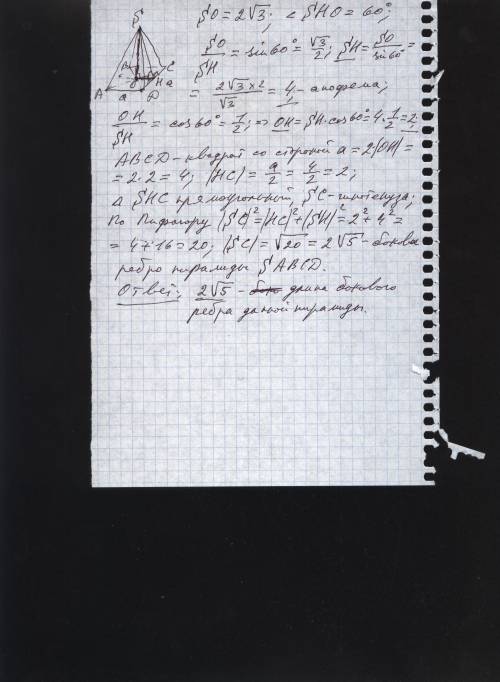 S
SO = 2√3; ∠SHO = 60°;
SO/SH = sin60° = √3/2; SH = SO/sin60° =
= 2√3×2/√3 = 4 - апофема;
A a D H a C B O
OH/SH = cos60° = 1/2; ⇒ OH = SH·cos60° = 4·1/2 = 2;
ABCD - квадрат со стороной a = 2|OH| =
= 2·2 = 4; |HC| = a/2 = 4/2 = 2;
Δ SHC прямоугольный, SC - гипотенуза;
По Пифагору |SC|² = |HC|² + |SH|² = 2² + 4² =
= 4 + 16 = 20; |SC| = √20 = 2√5 - боково
ребро пирамиды SABCD.
Ответ: 2√5 - длина бокового
ребра данной пирамиды.